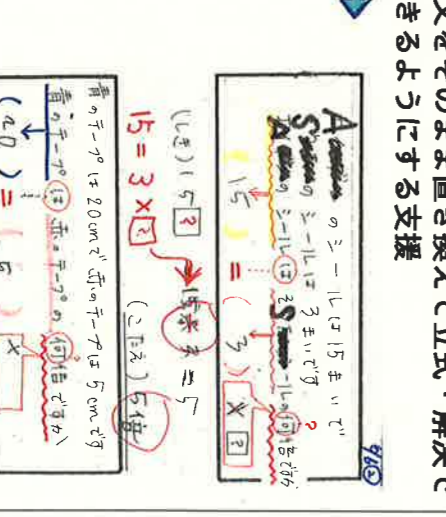 文をそのまま置き換えて立式・解決で
きるようにする支援
P64②
Aのシールは15まいで
Sのシールは3まいです
AのシールはSのシールの何倍ですか
?
(15) = (3) × ?
(しき) 15 ?
15 = 3 × ?
15÷3=5
(こたえ) 5倍
青のテープは20cmで赤のテープは5cmです
青のテープは赤のテープの何倍ですか
(20) = (5
×